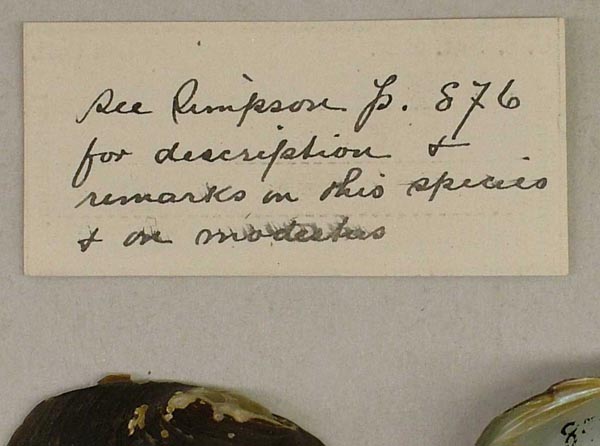 see Simpson p. 876
for description &
remarks on this species
& on modestus
8